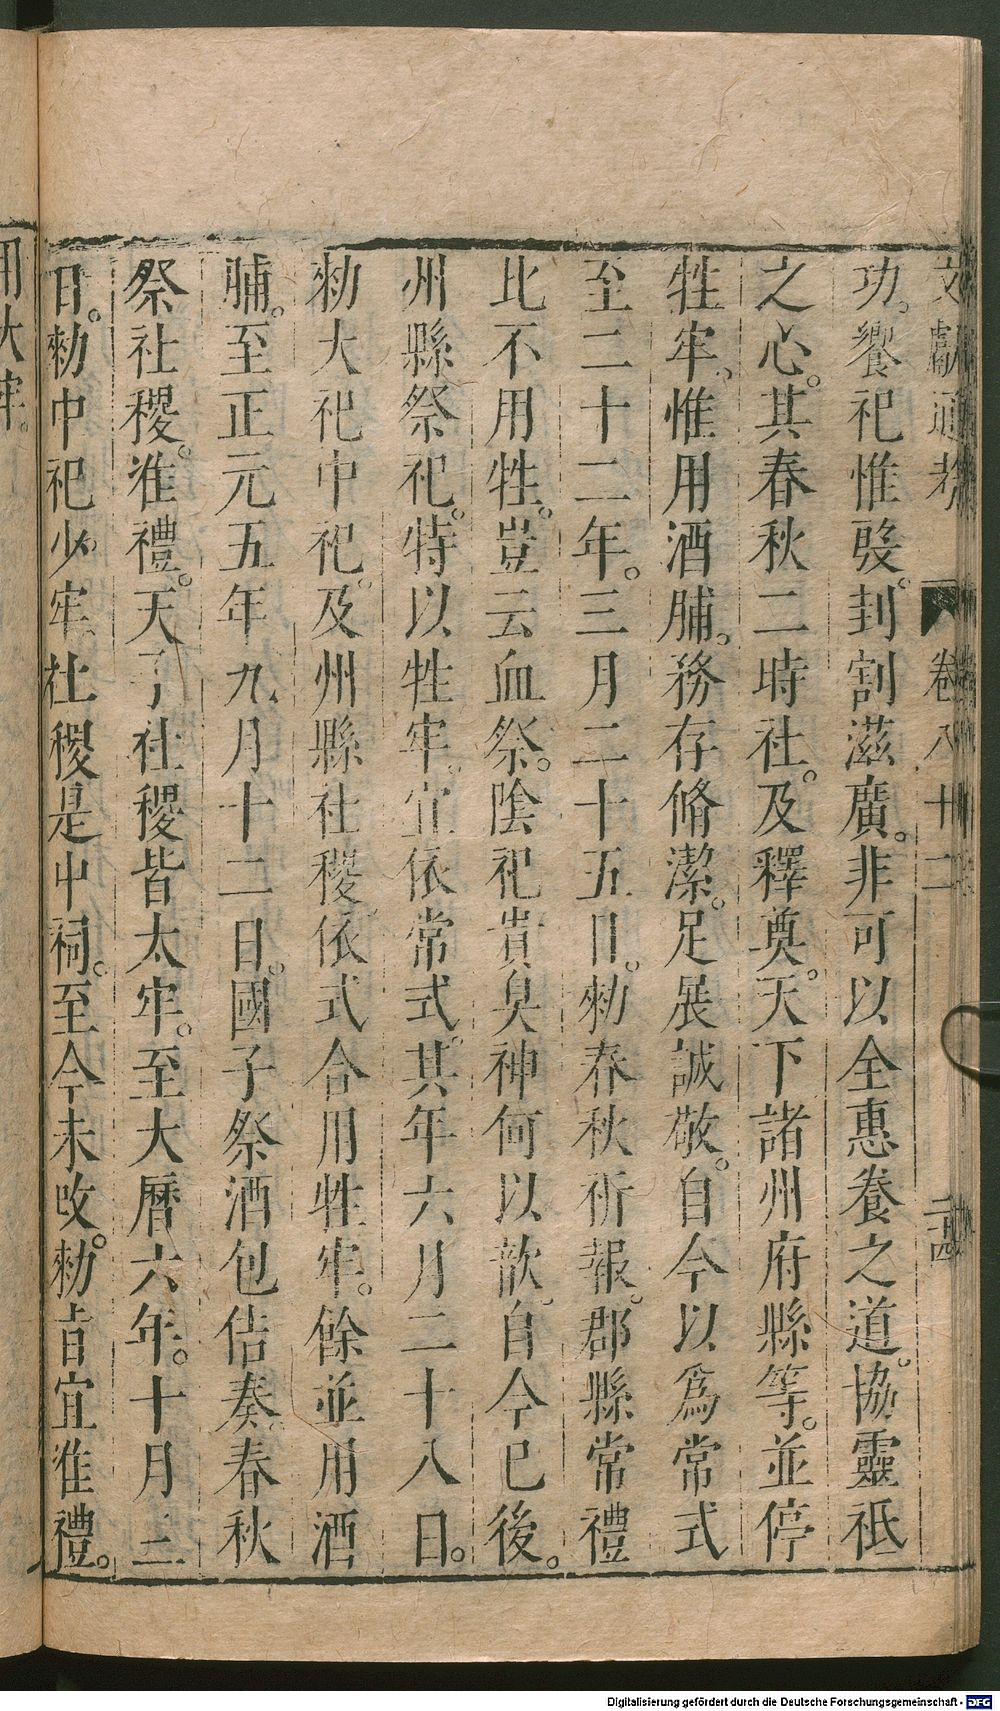 文獻通考 卷八十二 二十四
功。饗祀惟殷。刲割滋廣。非可以全惠養之道。協靈祇
之心。其春秋二時社。及釋奠。天下諸州府縣等。並停
牲牢。惟用酒脯。務存脩潔。足展誠敬。自今以爲常式
至二十二年。三月二十五日。勑春秋祈報。郡縣常禮
比不用牲。豈云血祭。陰祀貴臭神何以歆。自今已後。
州縣祭祀。特以牲牢。宜依常式。其年六月二十八日。
勑大祀中祀。及州縣社稷。依式合用牲牢。餘並用酒
脯。至正元五年九月十二日。國子祭酒包佶奏春秋
祭社稷。准禮。天子社稷皆太牢。至大曆六年。十月二
日。勑中祀少牢。社稷是中祠。至今未改。勑旨宜准禮。
用大牢。
Digitalisierung gefördert durch die Deutsche Forschungsgemeinschaft - DFG